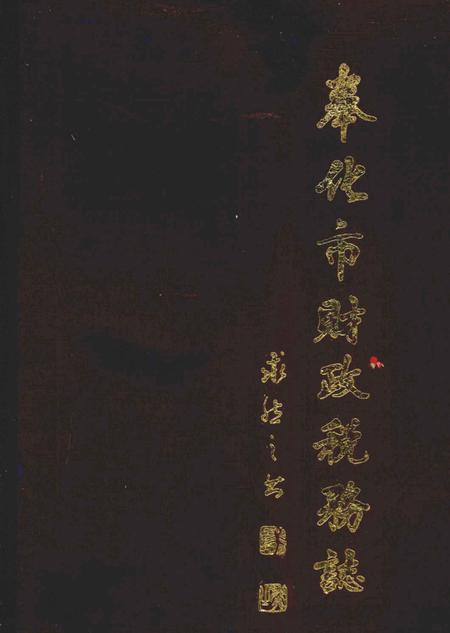 奉化市財政税務誌